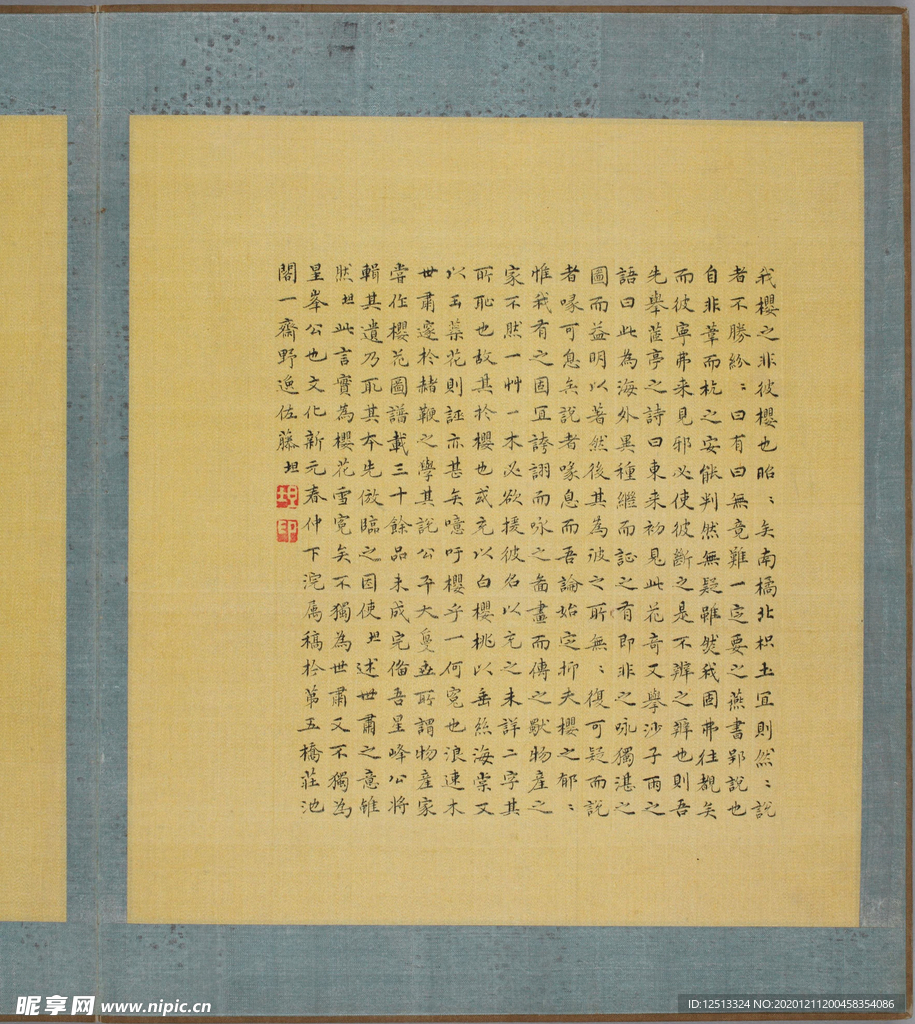 我櫻之非彼櫻也昭〻矣南橘北枳土宜則然〻說
者不勝紛〻曰有曰無竟難一定要之燕書郢說也
自非葦而杭之安能判然無疑雖然我固弗往觀矣
而彼寧弗来見邪必使彼斷之是不辨之辨也則吾
先舉蓝亭之詩曰東来初見此花奇又舉沙子雨之
語曰此為海外異種繼而証之有即非之咏獨湛之
圖而益明以著然後其為彼之所無〻復可疑而說
者喙可息矣說者喙息而吾論始定抑夫櫻之郁〻
惟我有之固宜誇詡而咏之啚畫而傳之歇物産之
家不然一艸一木必欲援彼名以充之未詳二字其
所恥也故其於櫻也或充以白櫻桃以垂絲海棠又
以玉蘂花則誣亦甚矣噫吁櫻乎一何寃也浪速木
世肅邃於赭鞭之學其說公平大戞世所謂物産家
嘗作櫻花圖譜載三十餘品未成完俻吾星峰公將
輯其遺乃取其本先倣臨之因使坦述世肅之意雖
然坦此言實為櫻花雪寃矣不獨為世肅又不獨為
星峯公也文化新元春仲下浣属稿於第五橋莊池
閣一齋野逸佐藤坦
坦
印
昵享网 www.nipic.cn
ID:12513324 NO:20201211200458354086